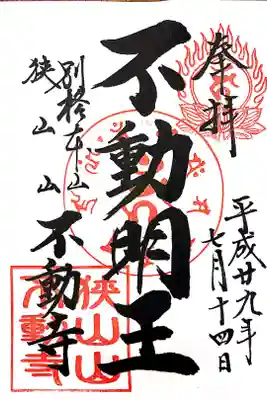 奉拝
平成廿九年
七月十四日
不動明王
別格本山
狭山山
不動寺
狭山山
不動寺